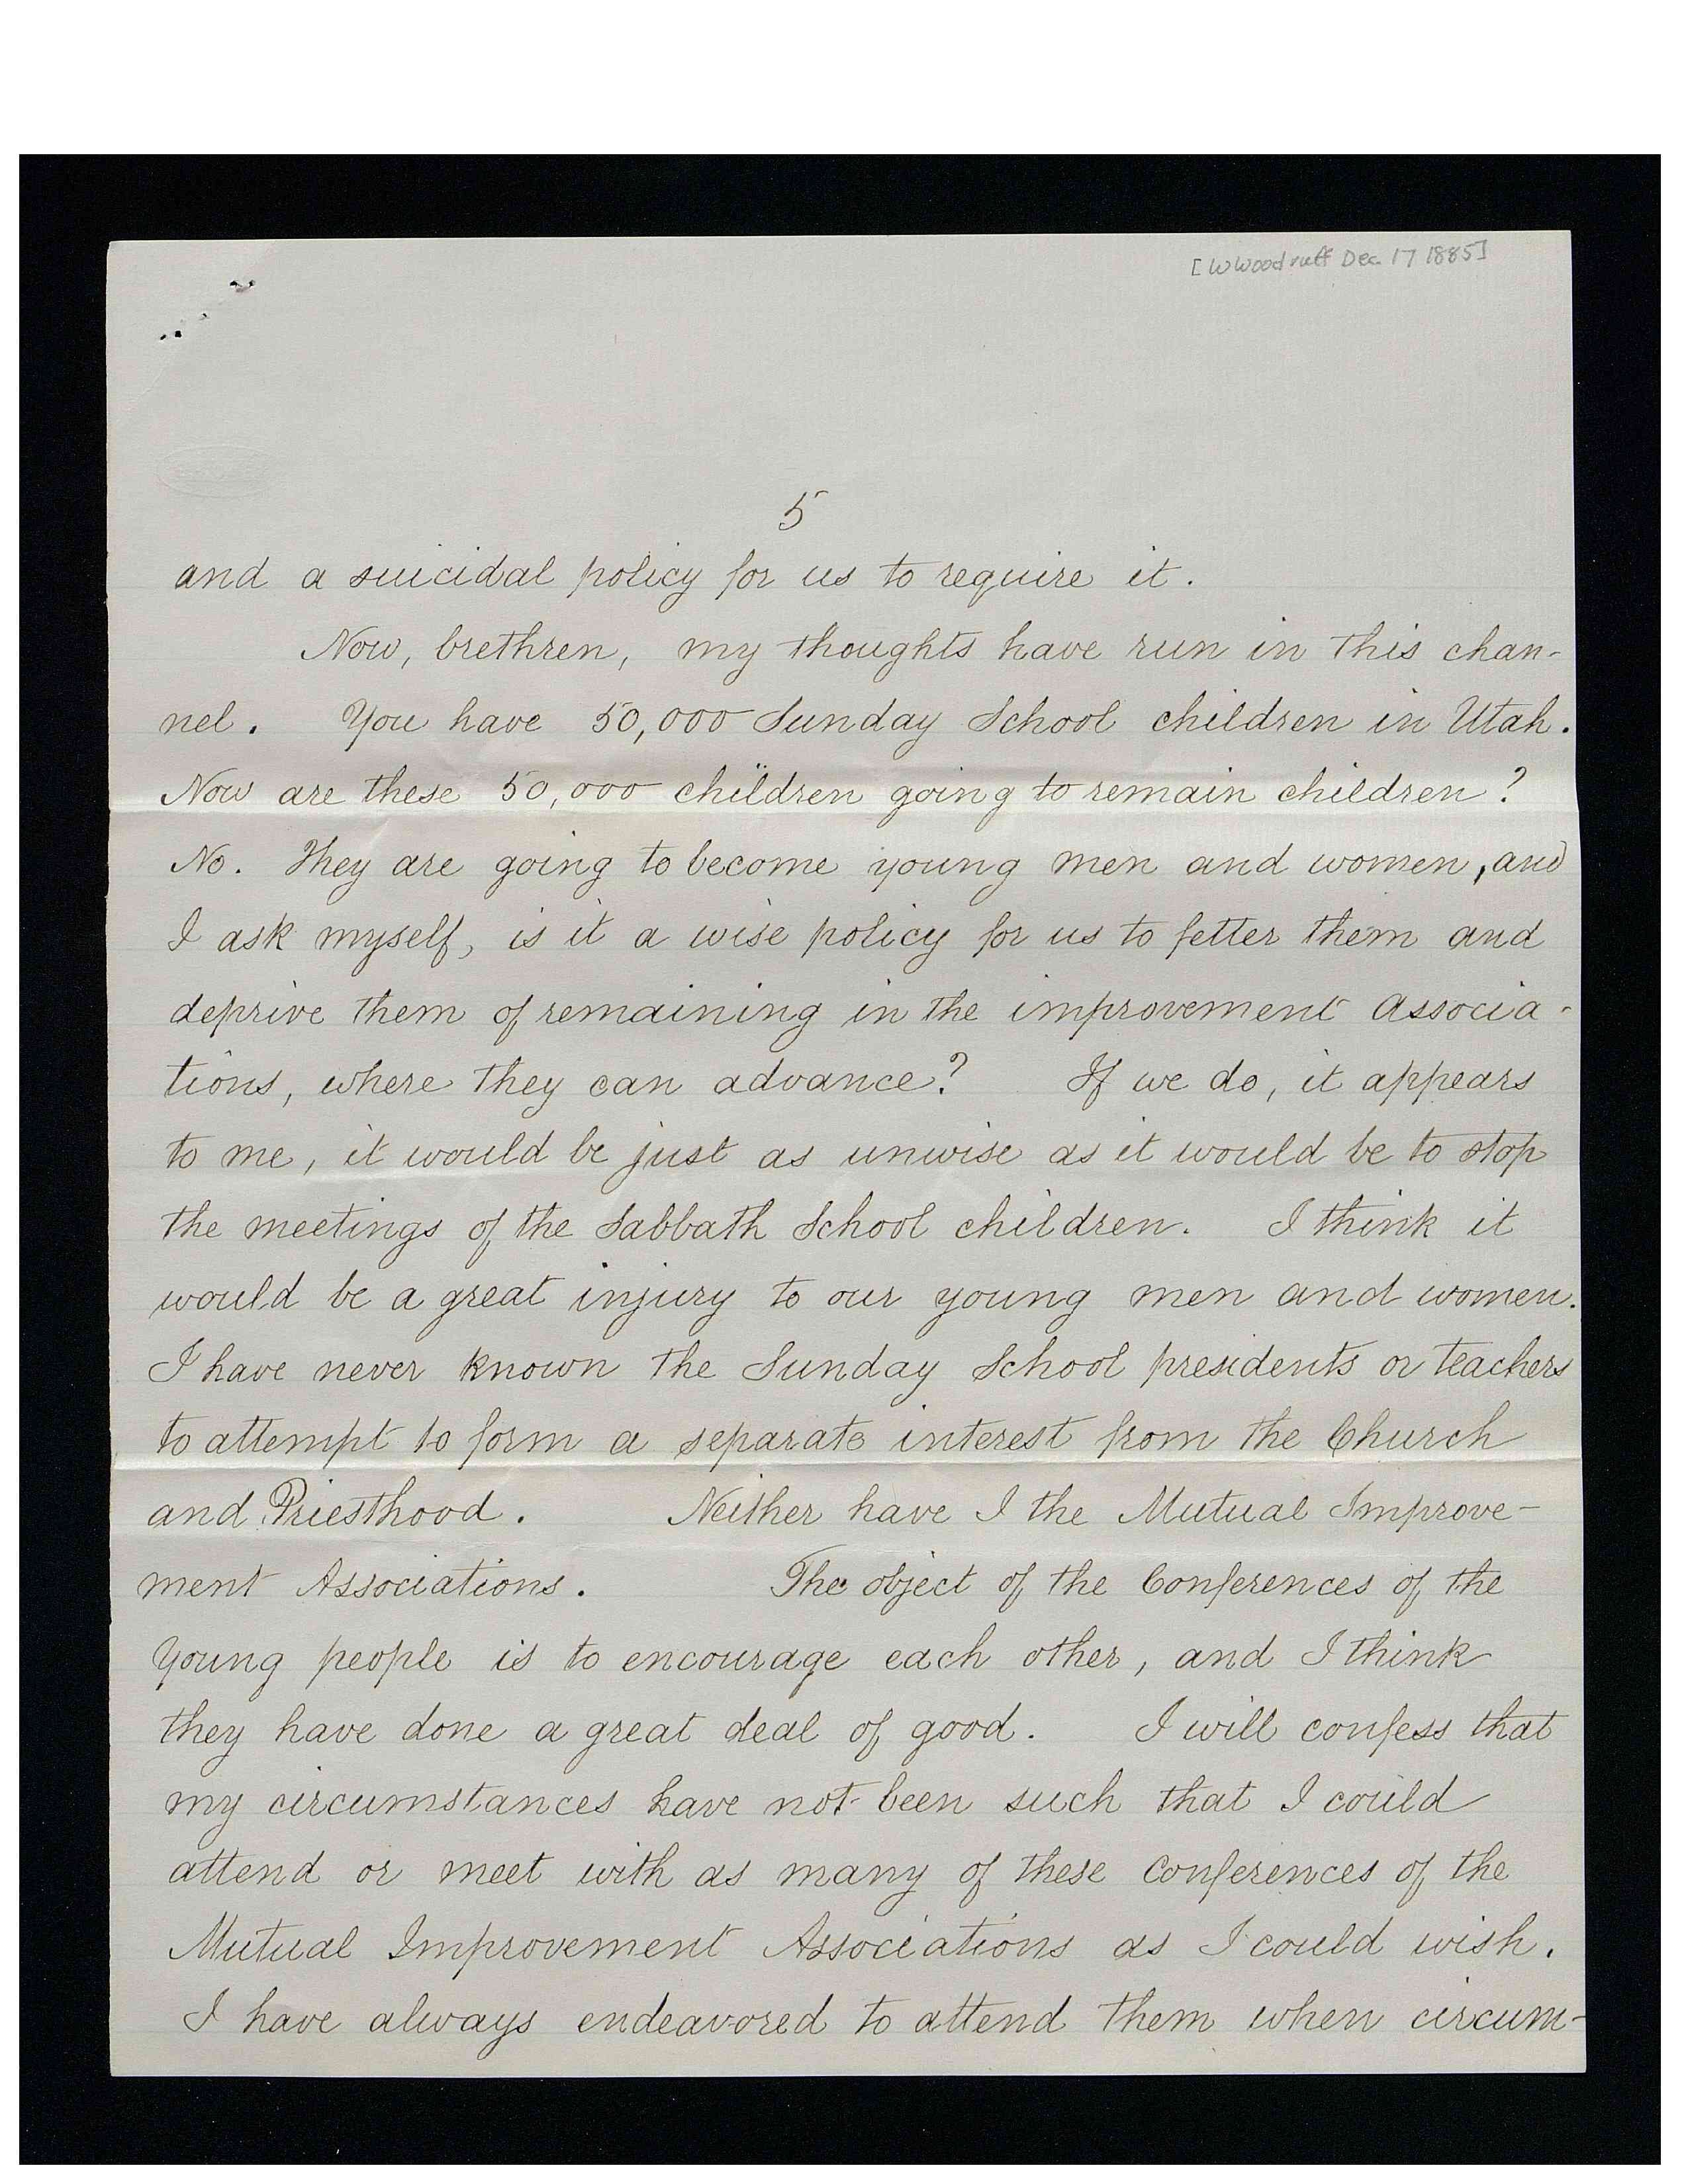 [W Woodruff Dec. 17 1885]
5
and a suicidal policy for us to require it.
Now, brethren, my thoughts have run in this chan-
nel. You have 50,000 Sunday School children in Utah.
Now are these 50,000 children going to remain children?
No. They are going to become young men and women, and
I ask myself, is it a wise policy for us to fetter them and
deprive them of remaining in the improvement associa-
tions, where they can advance? If we do, it appears
to me, it would be just as unwise as it would be to stop
the meetings of the Sabbath School children. I think it
would be a great injury to our young men and women.
I have never known the Sunday School presidents or teachers
to attempt to form a separate interest from the Church
and Priesthood. Neither have I the Mutual Improve-
ment Associations. The object of the Conferences of the
young people is to encourage each other, and I think
they have done a great deal of good. I will confess that
my circumstances have not been such that I could
attend or meet with as many of these conferences of the
Mutual Improvement Associations as I could wish.
I have always endeavored to attend them when circum-